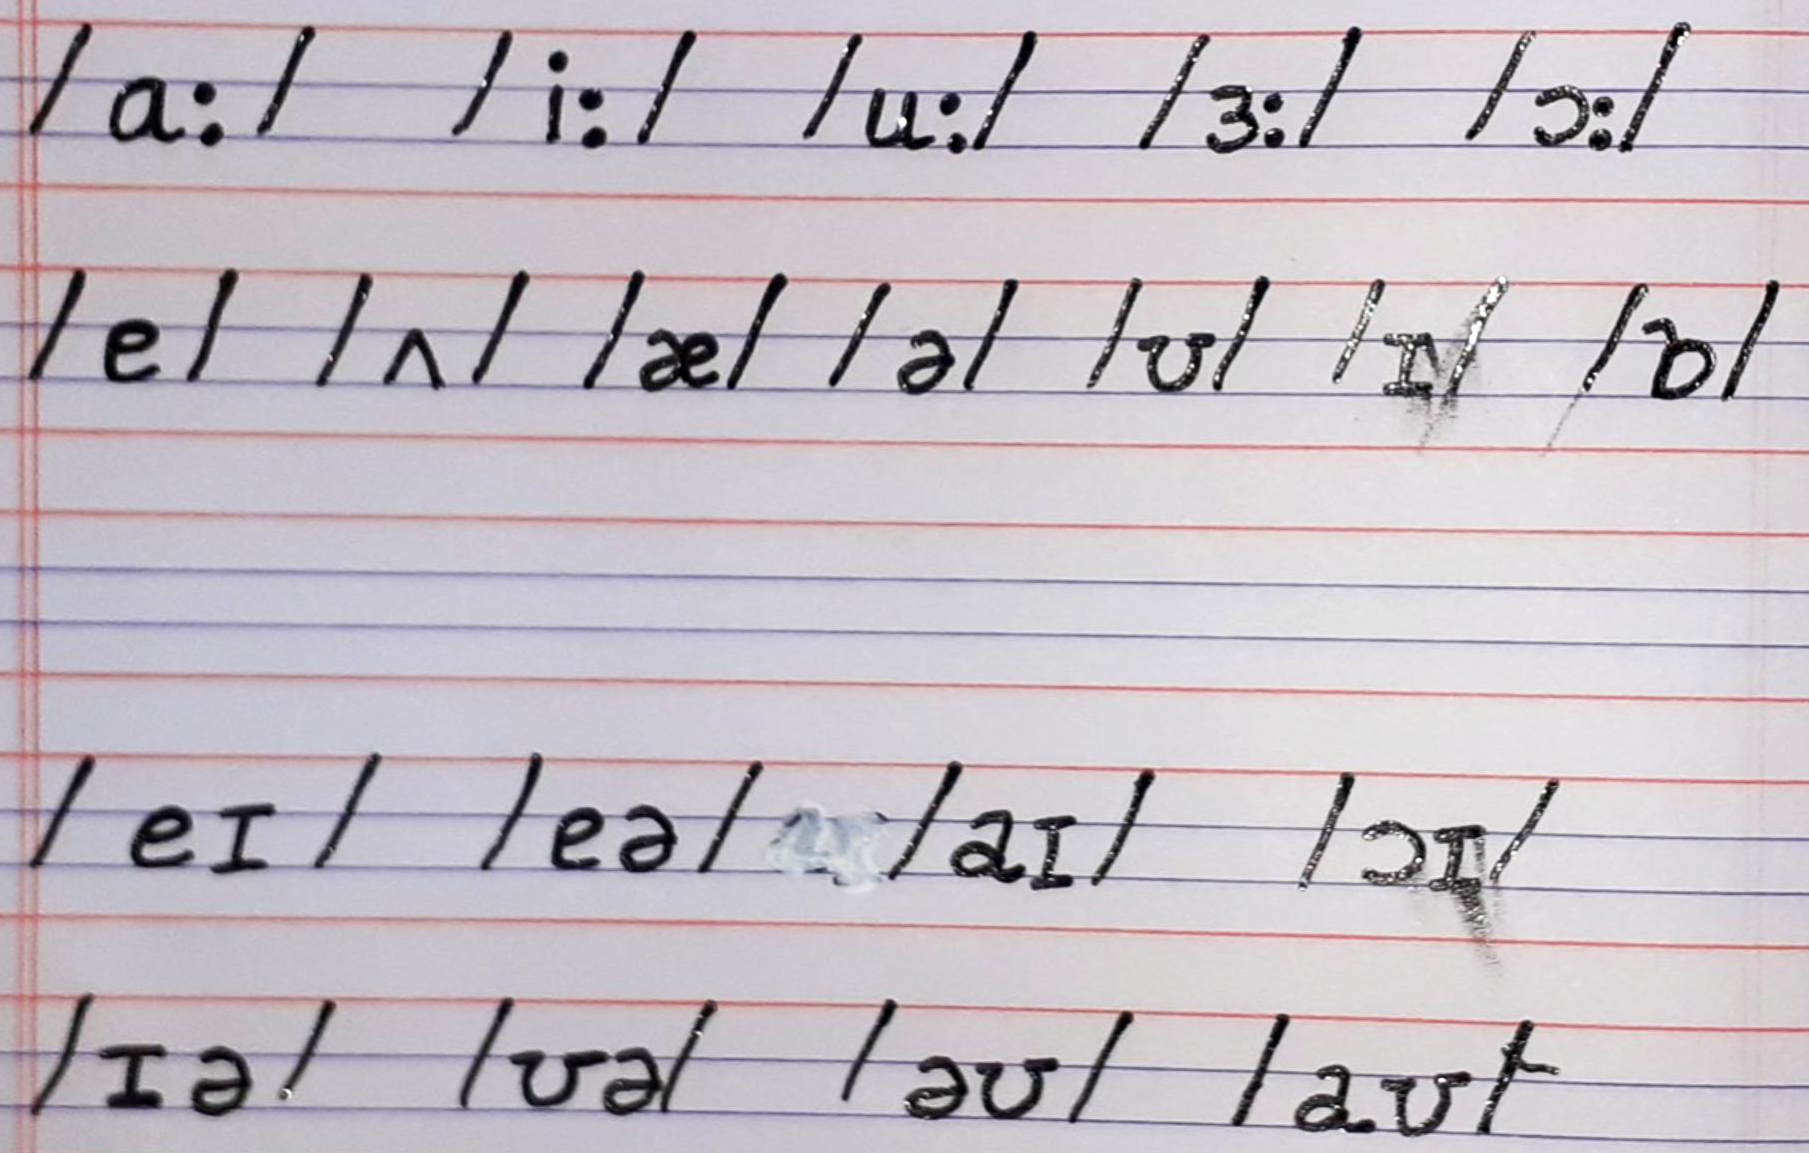 /a:/ /i:/ /u:/ /ɜ:/ /ɔ:/
/e/ /ʌ/ /æ/ /ə/ /ʊ/ /ɪ/ /ɒ/
/eɪ/ /eə/ /aɪ/ /ɔɪ/
/ɪə/ /ʊə/ /əʊ/ /aʊ/